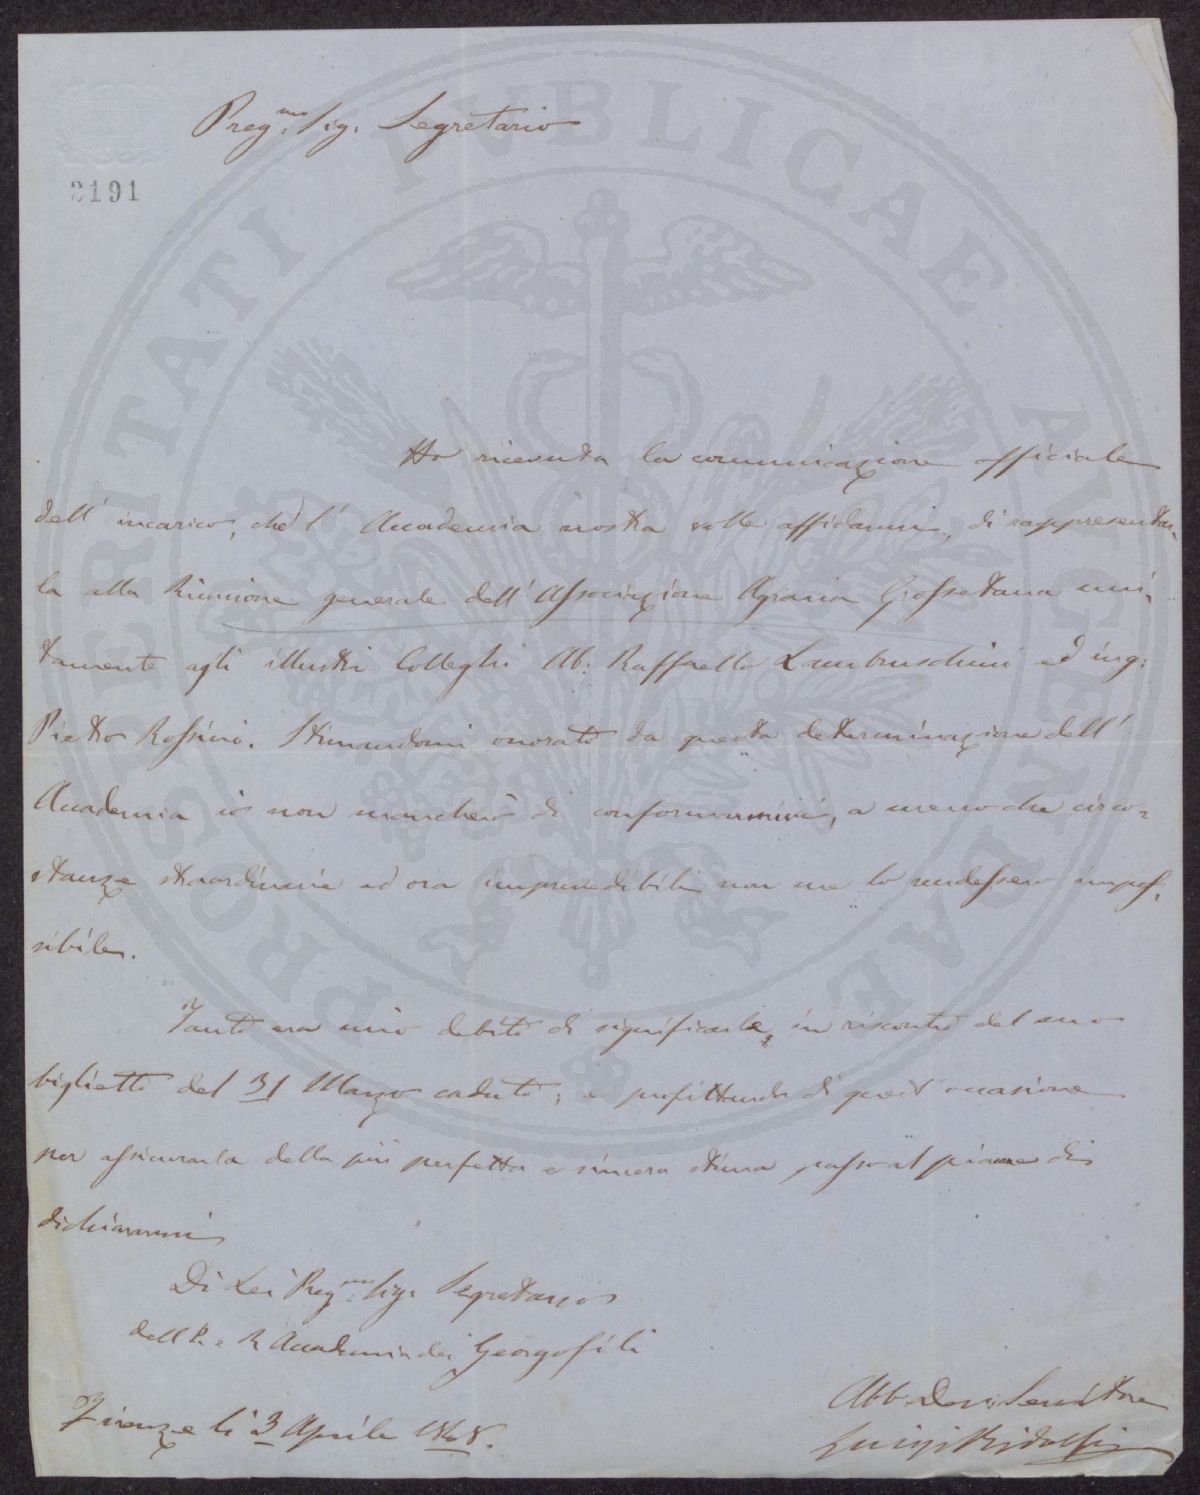 Preg.mo Sig. Segretario
2191
PROSPERITATI PVBLICAE AVGENDAE
Ho ricevuta la comunicazione officiale
dell' incarico, che l' Accademia nostra volle affidarmi, di rappresentar-
la alla Riunione generale dell' Associazione Agraria Grossetana uni-
tamente agli illustri Colleghi Ab. Raffaello Lambruschini ed ing:
Pietro Rossini. Stimandomi onorato da questa determinazione dell'
Accademia io non mancherò di conformarmivi, a meno che circo-
stanze straordinarie ed ora imprevedibili non me lo rendessero impos-
sibile.
Tanto era mio debito di significarle, in riscontro del suo
biglietto del 31 Marzo caduto; e profittando di quest' occasione
per assicurarla della più perfetta e sincera stima, passo al piacere di
dichiararmi
Di Lei Preg.mo Sig. Segretario
dell' I. e R. Accademia dei Georgofili
Firenze li 3 Aprile 1848.
Obb. Dev. Servitore
Luigi Ridolfi